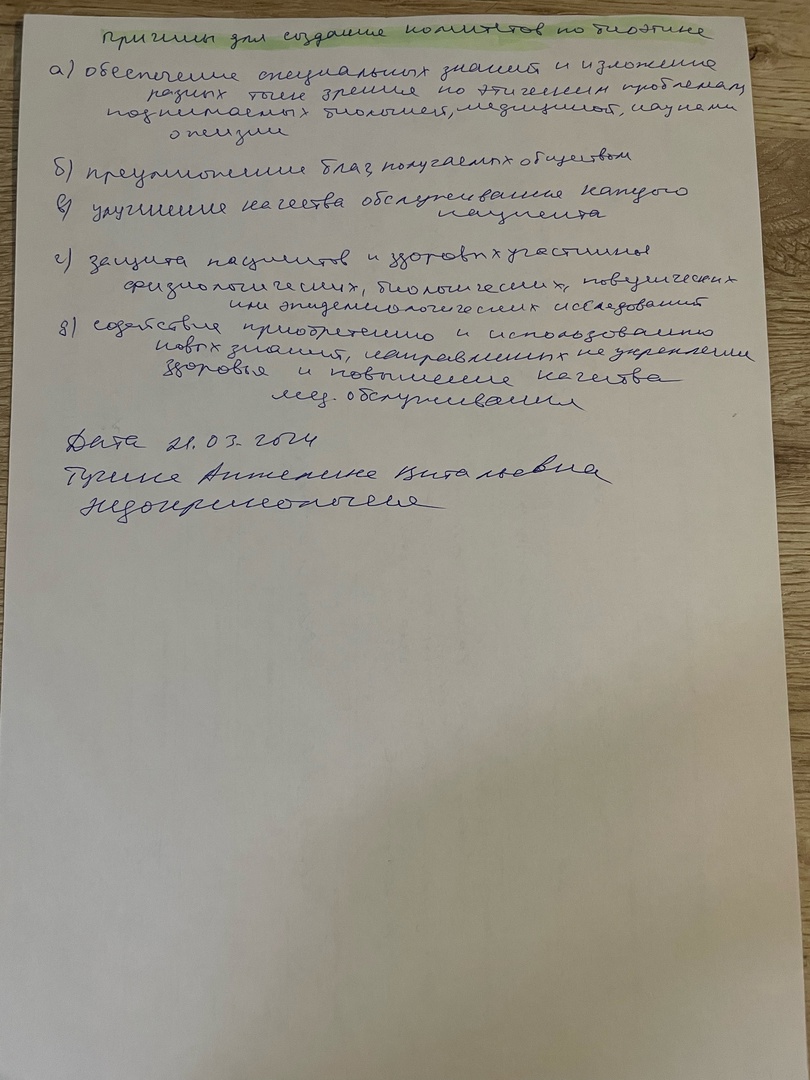 Причины для создания комитетов по биоэтике
а) обеспечение специальных знаний и изложение
разных точек зрения по этическим проблемам,
поднимаемых биологией, медициной, науками
о жизни
б) преумножение благ получаемых обществом
в) улучшение качества обслуживания каждого
пациента
г) защита пациентов и здоровых участников
физиологических, биологических, поведенческих
или эпидемиологических исследований
д) содействие приобретению и использованию
новых знаний, направленных на укрепление
здоровья и повышение качества
мед. обслуживания
Дата 21.03.2024
Ангелина Витальевна
Эндокринология